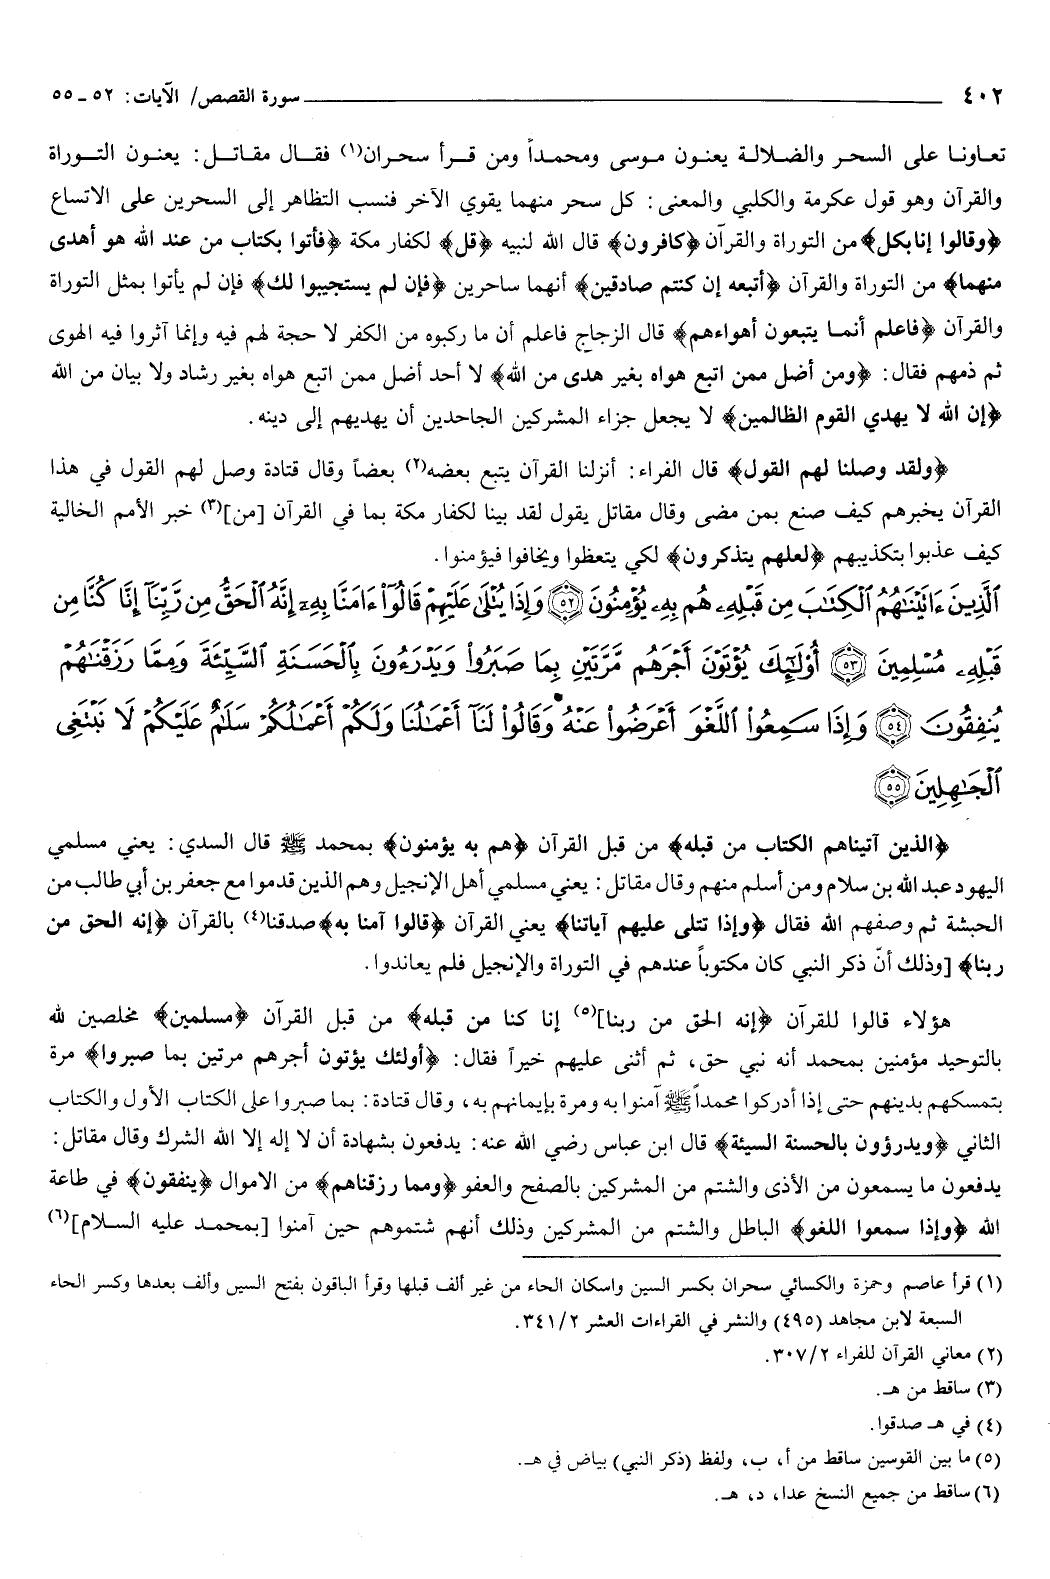 ٤٠٢ سورة القصص/ الآيات: ٥٢ ـ ٥٥
تعاونا على السحر والضلالة يعنون موسى ومحمداً ومن قرأ سحران(١) فقال مقاتل: يعنون التوراة
والقرآن وهو قول عكرمة والكلبي والمعنى: كل سحر منهما يقوي الآخر فنسب التظاهر إلى السحرين على الاتساع
﴿وقالوا إنا بكل﴾ من التوراة والقرآن ﴿كافرون﴾ قال الله لنبيه ﴿قل﴾ لكفار مكة ﴿فأتوا بكتاب من عند الله هو أهدى
منهما﴾ من التوراة والقرآن ﴿أتبعه إن كنتم صادقين﴾ أنهما ساحرين ﴿فإن لم يستجيبوا لك﴾ فإن لم يأتوا بمثل التوراة
والقرآن ﴿فاعلم أنما يتبعون أهواءهم﴾ قال الزجاج فاعلم أن ما ركبوه من الكفر لا حجة لهم فيه وإنما آثروا فيه الهوى
ثم ذمهم فقال: ﴿ومن أضل ممن اتبع هواه بغير هدى من الله﴾ لا أحد أضل ممن اتبع هواه بغير رشاد ولا بيان من الله
﴿إن الله لا يهدي القوم الظالمين﴾ لا يجعل جزاء المشركين الجاحدين أن يهديهم إلى دينه.
﴿ولقد وصلنا لهم القول﴾ قال الفراء: أنزلنا القرآن يتبع بعضه(٢) بعضاً وقال قتادة وصل لهم القول في هذا
القرآن يخبرهم كيف صنع بمن مضى وقال مقاتل يقول لقد بينا لكفار مكة بما في القرآن [من](٣) خبر الأمم الخالية
كيف عذبوا بتكذيبهم ﴿لعلهم يتذكرون﴾ لكي يتعظوا ويخافوا فيؤمنوا.
ٱلَّذِينَ ءَاتَيْنَٰهُمُ ٱلْكِتَٰبَ مِن قَبْلِهِۦ هُم بِهِۦ يُؤْمِنُونَ ﴿٥٢﴾ وَإِذَا يُتْلَىٰ عَلَيْهِمْ قَالُوٓا۟ ءَامَنَّا بِهِۦٓ إِنَّهُ ٱلْحَقُّ مِن رَّبِّنَآ إِنَّا كُنَّا مِن
قَبْلِهِۦ مُسْلِمِينَ ﴿٥٣﴾ أُو۟لَٰٓئِكَ يُؤْتَوْنَ أَجْرَهُم مَّرَّتَيْنِ بِمَا صَبَرُوا۟ وَيَدْرَءُونَ بِٱلْحَسَنَةِ ٱلسَّيِّئَةَ وَمِمَّا رَزَقْنَٰهُمْ
يُنفِقُونَ ﴿٥٤﴾ وَإِذَا سَمِعُوا۟ ٱللَّغْوَ أَعْرَضُوا۟ عَنْهُ وَقَالُوا۟ لَنَآ أَعْمَٰلُنَا وَلَكُمْ أَعْمَٰلُكُمْ سَلَٰمٌ عَلَيْكُمْ لَا نَبْتَغِى
ٱلْجَٰهِلِينَ ﴿٥٥﴾
﴿الذين آتيناهم الكتاب من قبله﴾ من قبل القرآن ﴿هم به يؤمنون﴾ بمحمد ﷺ قال السدي: يعني مسلمي
اليهود عبد الله بن سلام ومن أسلم منهم وقال مقاتل: يعني مسلمي أهل الإنجيل وهم الذين قدموا مع جعفر بن أبي طالب من
الحبشة ثم وصفهم الله فقال ﴿وإذا تتلى عليهم آياتنا﴾ يعني القرآن ﴿قالوا آمنا به﴾ صدقنا(٤) بالقرآن ﴿إنه الحق من
ربنا﴾ [وذلك أنّ ذكر النبي كان مكتوباً عندهم في التوراة والإنجيل فلم يعاندوا.
هؤلاء قالوا للقرآن ﴿إنه الحق من ربنا](٥) إنا كنا من قبله﴾ من قبل القرآن ﴿مسلمين﴾ مخلصين لله
بالتوحيد مؤمنين بمحمد أنه نبي حق، ثم أثنى عليهم خيراً فقال: ﴿أولئك يؤتون أجرهم مرتين بما صبروا﴾ مرة
بتمسكهم بدينهم حتى إذا أدركوا محمداً ﷺ آمنوا به ومرة بإيمانهم به، وقال قتادة: بما صبروا على الكتاب الأول والكتاب
الثاني ﴿ويدرؤون بالحسنة السيئة﴾ قال ابن عباس رضي الله عنه: يدفعون بشهادة أن لا إله إلا الله الشرك وقال مقاتل:
يدفعون ما يسمعون من الأذى والشتم من المشركين بالصفح والعفو ﴿ومما رزقناهم﴾ من الاموال ﴿ينفقون﴾ في طاعة
الله ﴿وإذا سمعوا اللغو﴾ الباطل والشتم من المشركين وذلك أنهم شتموهم حين آمنوا [بمحمد عليه السلام](٦)
(١) قرأ عاصم وحمزة والكسائي سحران بكسر السين واسكان الحاء من غير ألف قبلها وقرأ الباقون بفتح السين وألف بعدها وكسر الحاء
السبعة لابن مجاهد (٤٩٥) والنشر في القراءات العشر ٣٤١/٢.
(٢) معاني القرآن للفراء ٣٠٧/٢.
(٣) ساقط من هـ.
(٤) في هـ صدقوا.
(٥) ما بين القوسين ساقط من أ، ب، ولفظ (ذكر النبي) بياض في هـ.
(٦) ساقط من جميع النسخ عدا، د، هـ.